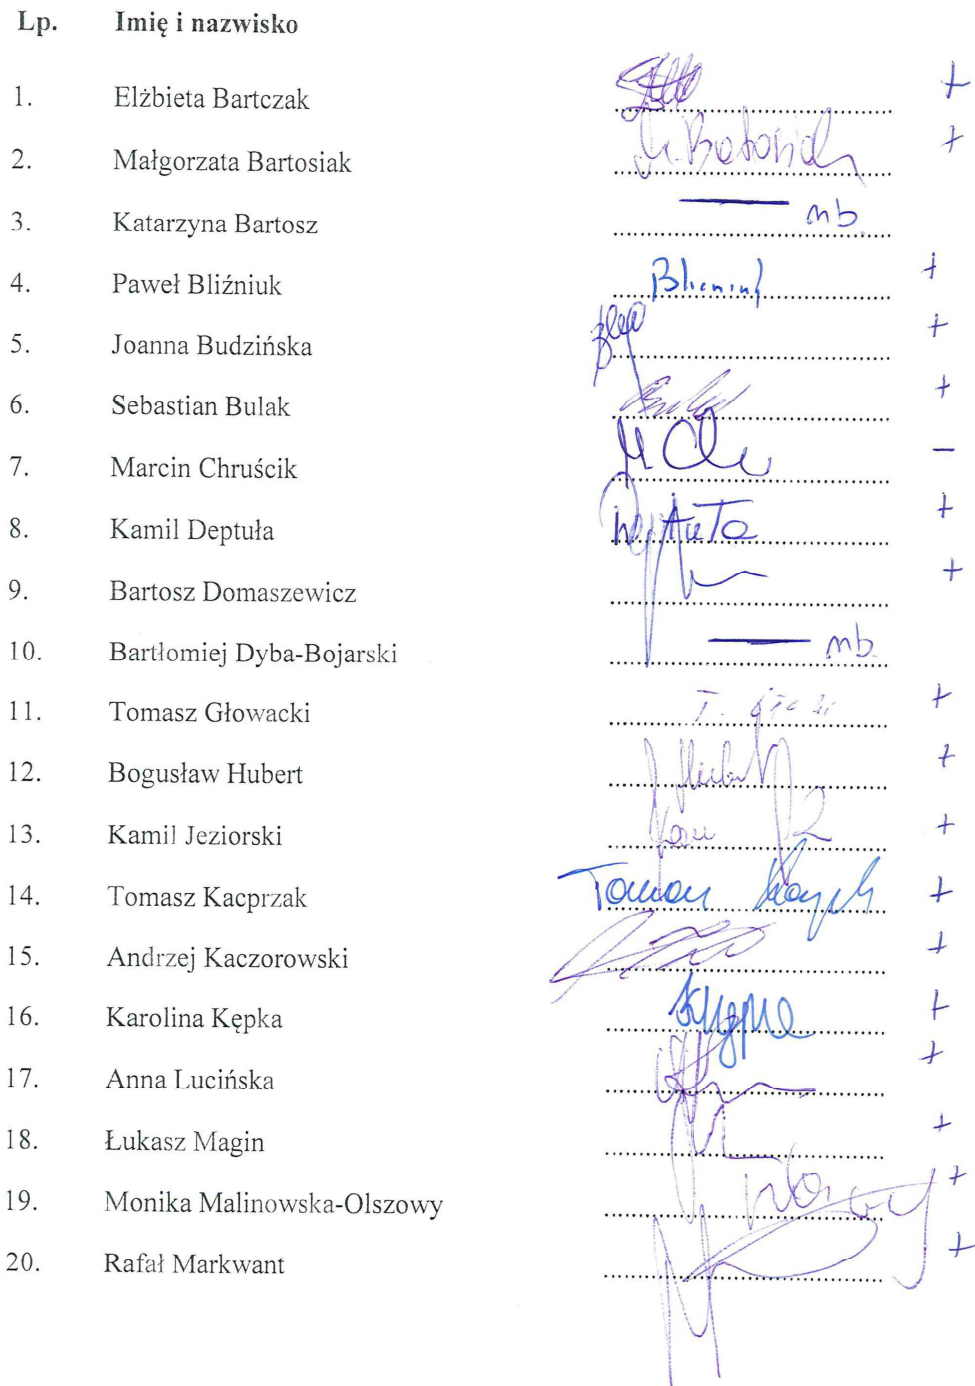 Lp. Imię i nazwisko
1. Elżbieta Bartczak +
2. Małgorzata Bartosiak +
3. Katarzyna Bartosz — nb.
4. Paweł Bliźniuk +
5. Joanna Budzińska +
6. Sebastian Bulak +
7. Marcin Chruścik M Ch –
8. Kamil Deptuła +
9. Bartosz Domaszewicz +
10. Bartłomiej Dyba-Bojarski — nb.
11. Tomasz Głowacki +
12. Bogusław Hubert +
13. Kamil Jeziorski +
14. Tomasz Kacprzak +
15. Andrzej Kaczorowski +
16. Karolina Kępka +
17. Anna Lucińska +
18. Łukasz Magin +
19. Monika Malinowska-Olszowy +
20. Rafał Markwant +